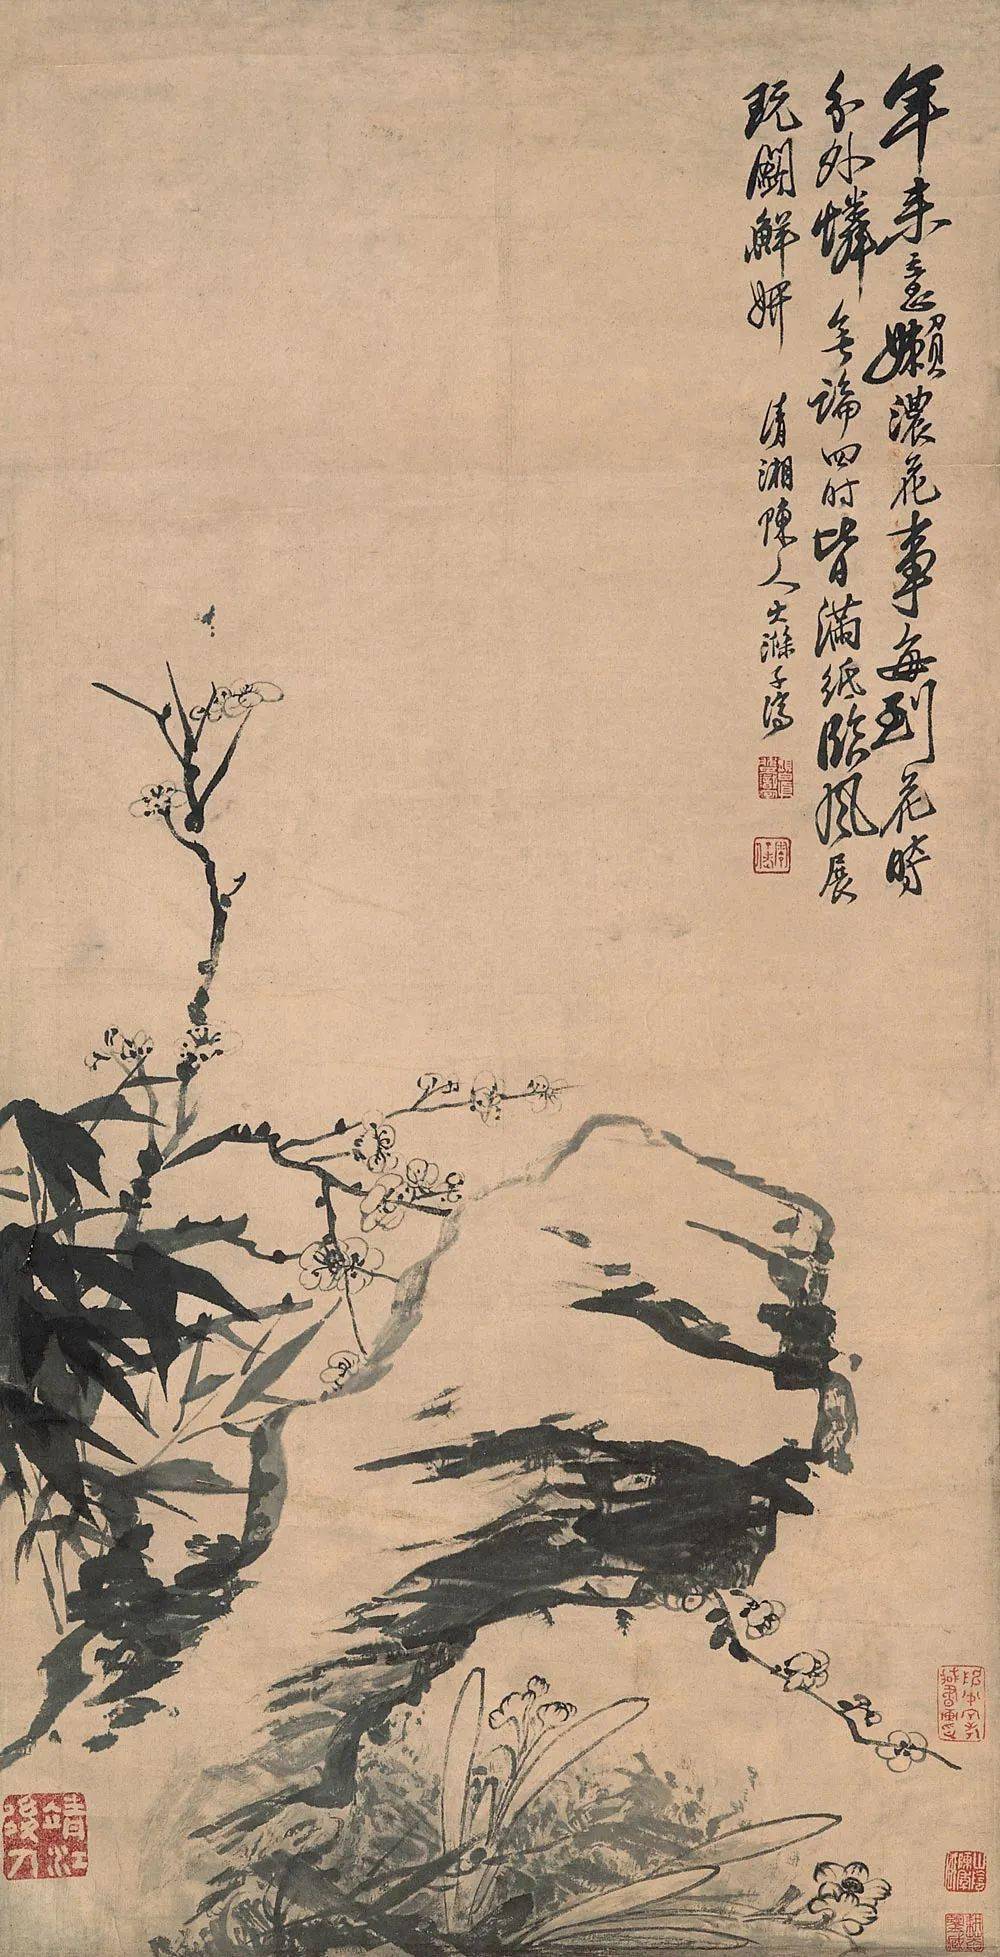 年来意懒浓花事每到花時
分外憐無論四时皆滿紙臨風展
玩鬭鮮妍
清湘陳人大滌子濟
靖江後人